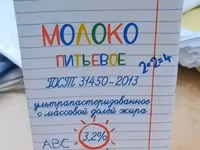 МОЛОКО
ПИТЬЕВОЕ
ГОСТ 31450-2013
2×2=4
ультрапастеризованное
с массовой долей жира
ABC 3,2%